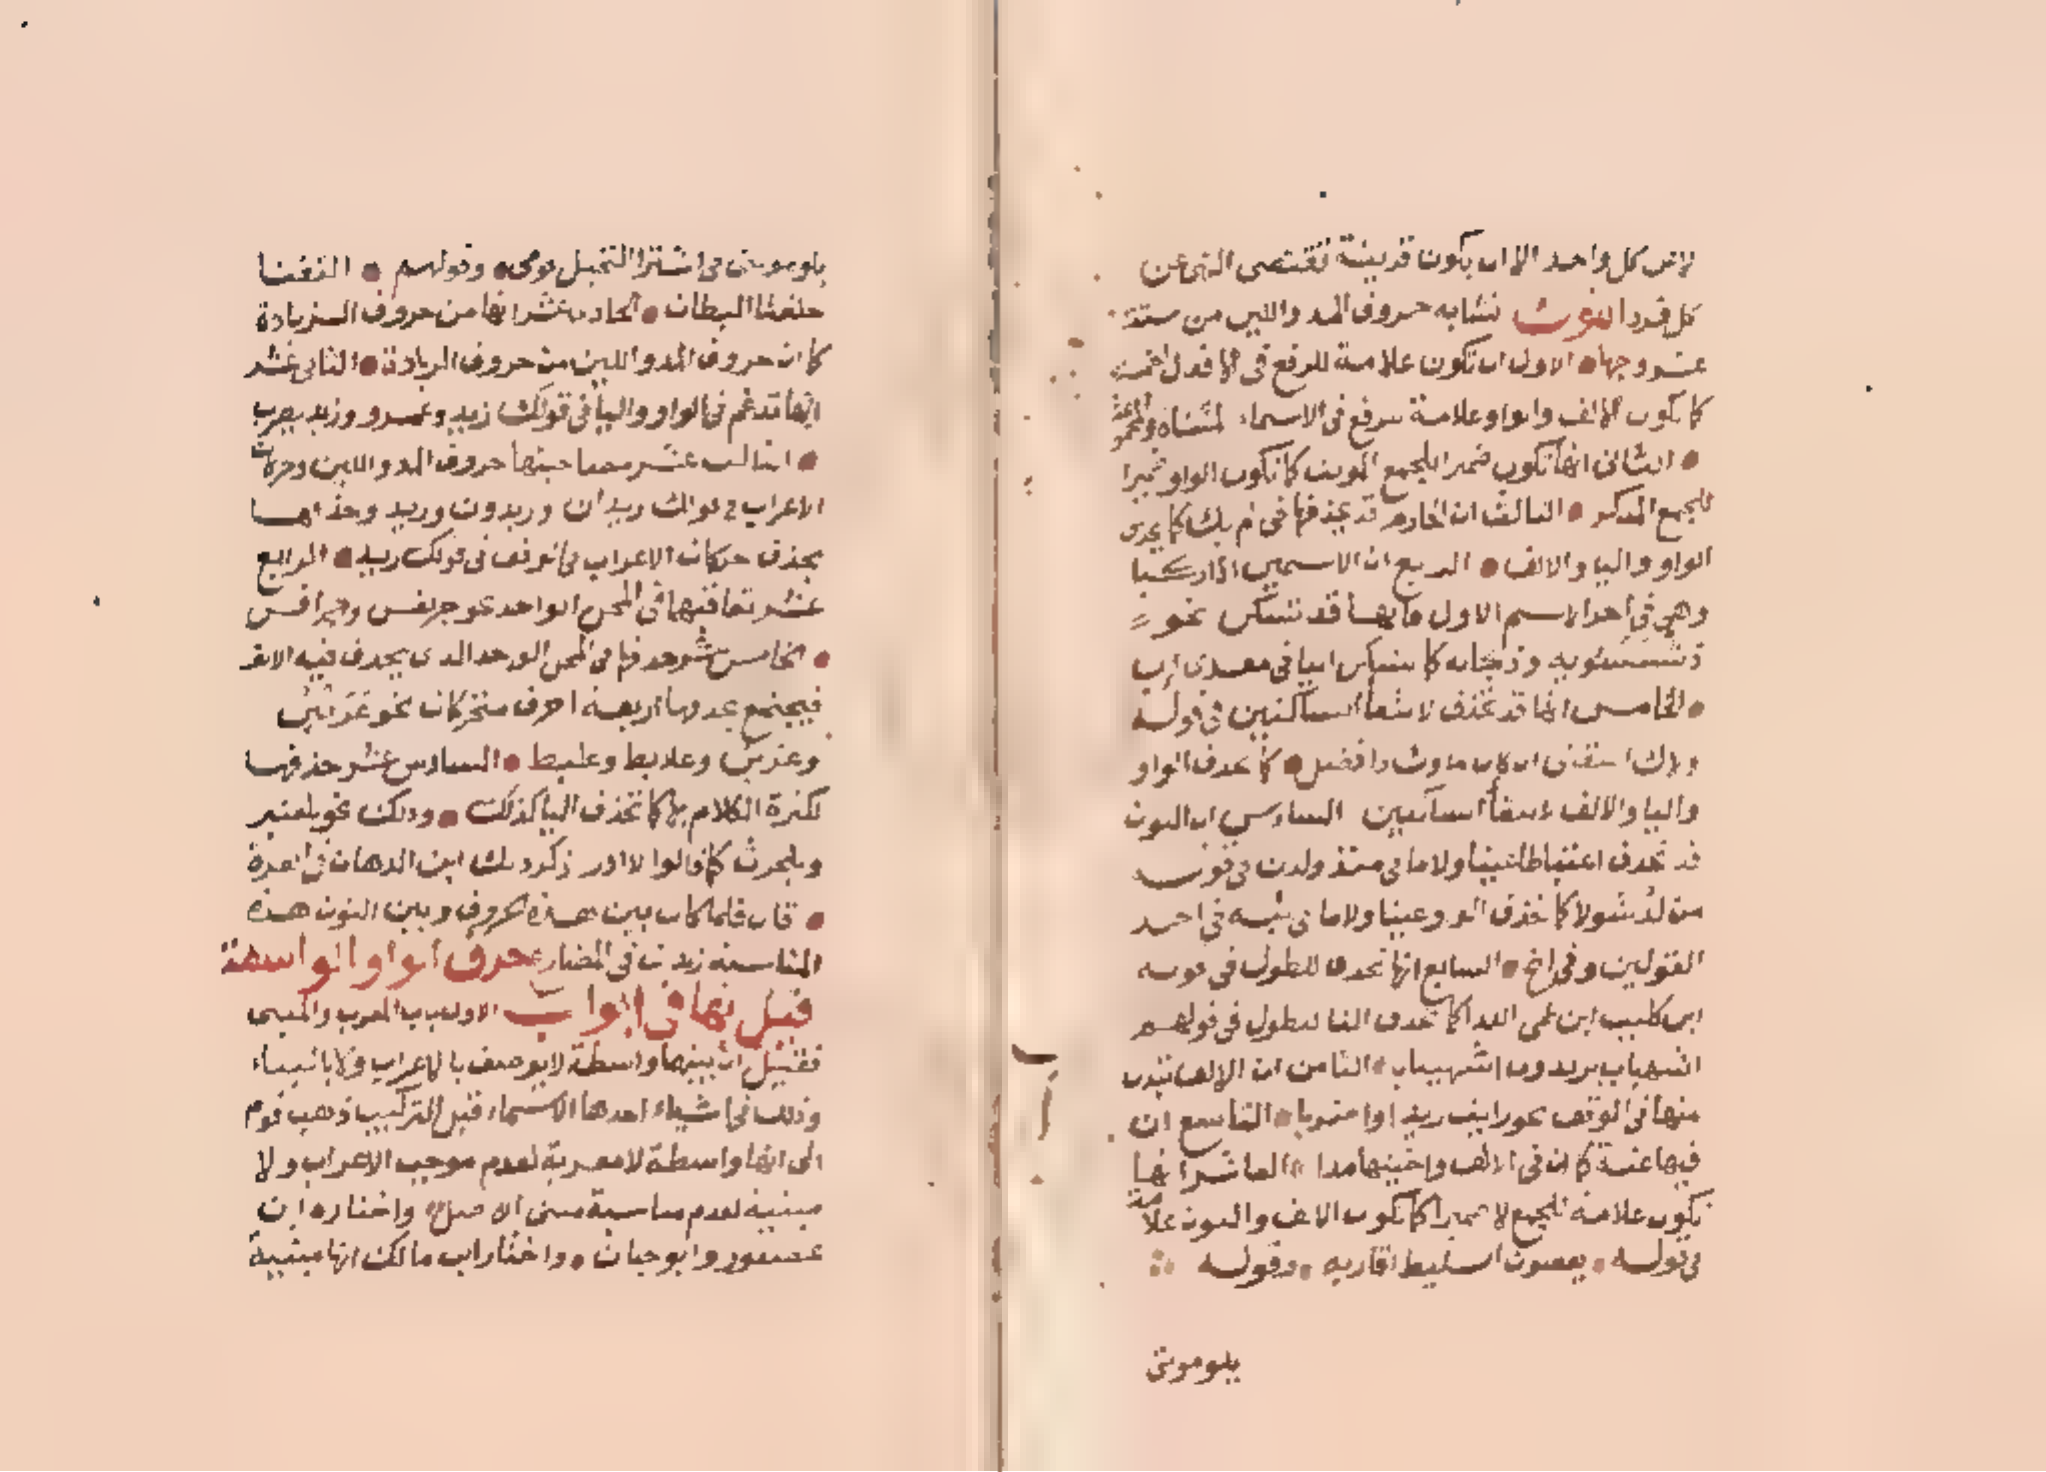 لا من كل واحد الا ان يكون قرينة تقتضى النهى عن
كل فرد النون تشابه حروف المد واللين من ستة
عشر وجها الاول ان تكون علامة للرفع فى الافعال الخمسة
كما تكون الالف والواو علامة للرفع فى الاسماء المثناه والمجموعة
الثانى انها تكون ضميرا للجمع المونث كما تكون الواو ضميرا
للجمع المذكر الثالث ان الجازم قد يحذفها فى لم يك كما يحذف
الواو واليا والالف الرابع ان الاسمين اذا ركبا
وهي في اخر الاسم الاول منهما قد تسكن نحو
دستنبويه وباذنجانه كما تسكن اليا فى معدى كرب
الخامس انها قد تحذف لالتقا الساكنين فى قوله
ولاك اسقنى ان كان ماوك ذا فضل كما تحذف الواو
واليا والالف لالتقا الساكنين السادس ان النون
قد تحذف اعتباطا عينا ولاما فى مذ ولدن فى قوله
من لد شولا كما تحذف الواو عينا ولاما فى ثبة فى احد
القولين وفى اخ السابع انها تحذف للطول فى قوله
ابنى كليب ان عمى اللذا كما تحذف اليا للطول فى قولهم
اشهباب يريدون اشهيباب الثامن ان الالف تبدل
منها فى الوقف نحو رايت زيدا واضربا التاسع ان
فيها غنة كما ان فى الالف واختيها مدا العاشر انها
تكون علامة للجمع لا ضميرا كما تكون الالف والنون علامة
فى قوله يعصرن السليط اقاربه وقوله
يلوموننى
يلوموننى فى اشترا النخيل قومى وقولهم التقتا
حلقتا البطان الحادى عشر انها من حروف الزيادة
كما ان حروف المد واللين من حروف الزيادة الثانى عشر
انها تدغم فى الواو واليا فى قولك زيد وعمرو وزيد يضرب
الثالث عشر مصاحبتها حروف المد واللين وحركات
الاعراب فى قولك زيدان وزيدون وزيد وحذفها
بحذف حركات الاعراب فى الوقف فى قولك زيد الرابع
عشر تعاقبهما فى المحل الواحد نحو جرنفس وجرافس
الخامس عشر حذفها فى المحل الواحد الذى يحذف فيه الالف
فيجتمع بحذفها اربعة احرف متحركات نحو عرنتن
وعرتن وعلابط وعلبط السادس عشر حذفها
لكثرة الكلام بها كما تحذف اليا كذلك وذلك نحو بلعنبر
وبلحرث كما قالوا لا ادر ذكر ذلك ابن الدهان فى الغرة
قال فلما كان بين هذه الحروف وبين النون هذه
المناسبة زيدت فى المضارع حرف الواو الواسطة
قيل بها فى ابواب الاول باب المعرب والمبنى
فقيل ان بينهما واسطة لا يوصف بالاعراب ولا بالبناء
وذلك فى اشياء احدها الاسماء قبل التركيب ذهب قوم
الى انها واسطة لا معربة لعدم موجب الاعراب ولا
مبنية لعدم مناسبة مبنى الاصل واختاره ابن
عصفور وابو حيان واختار ابن مالك انها مبنية